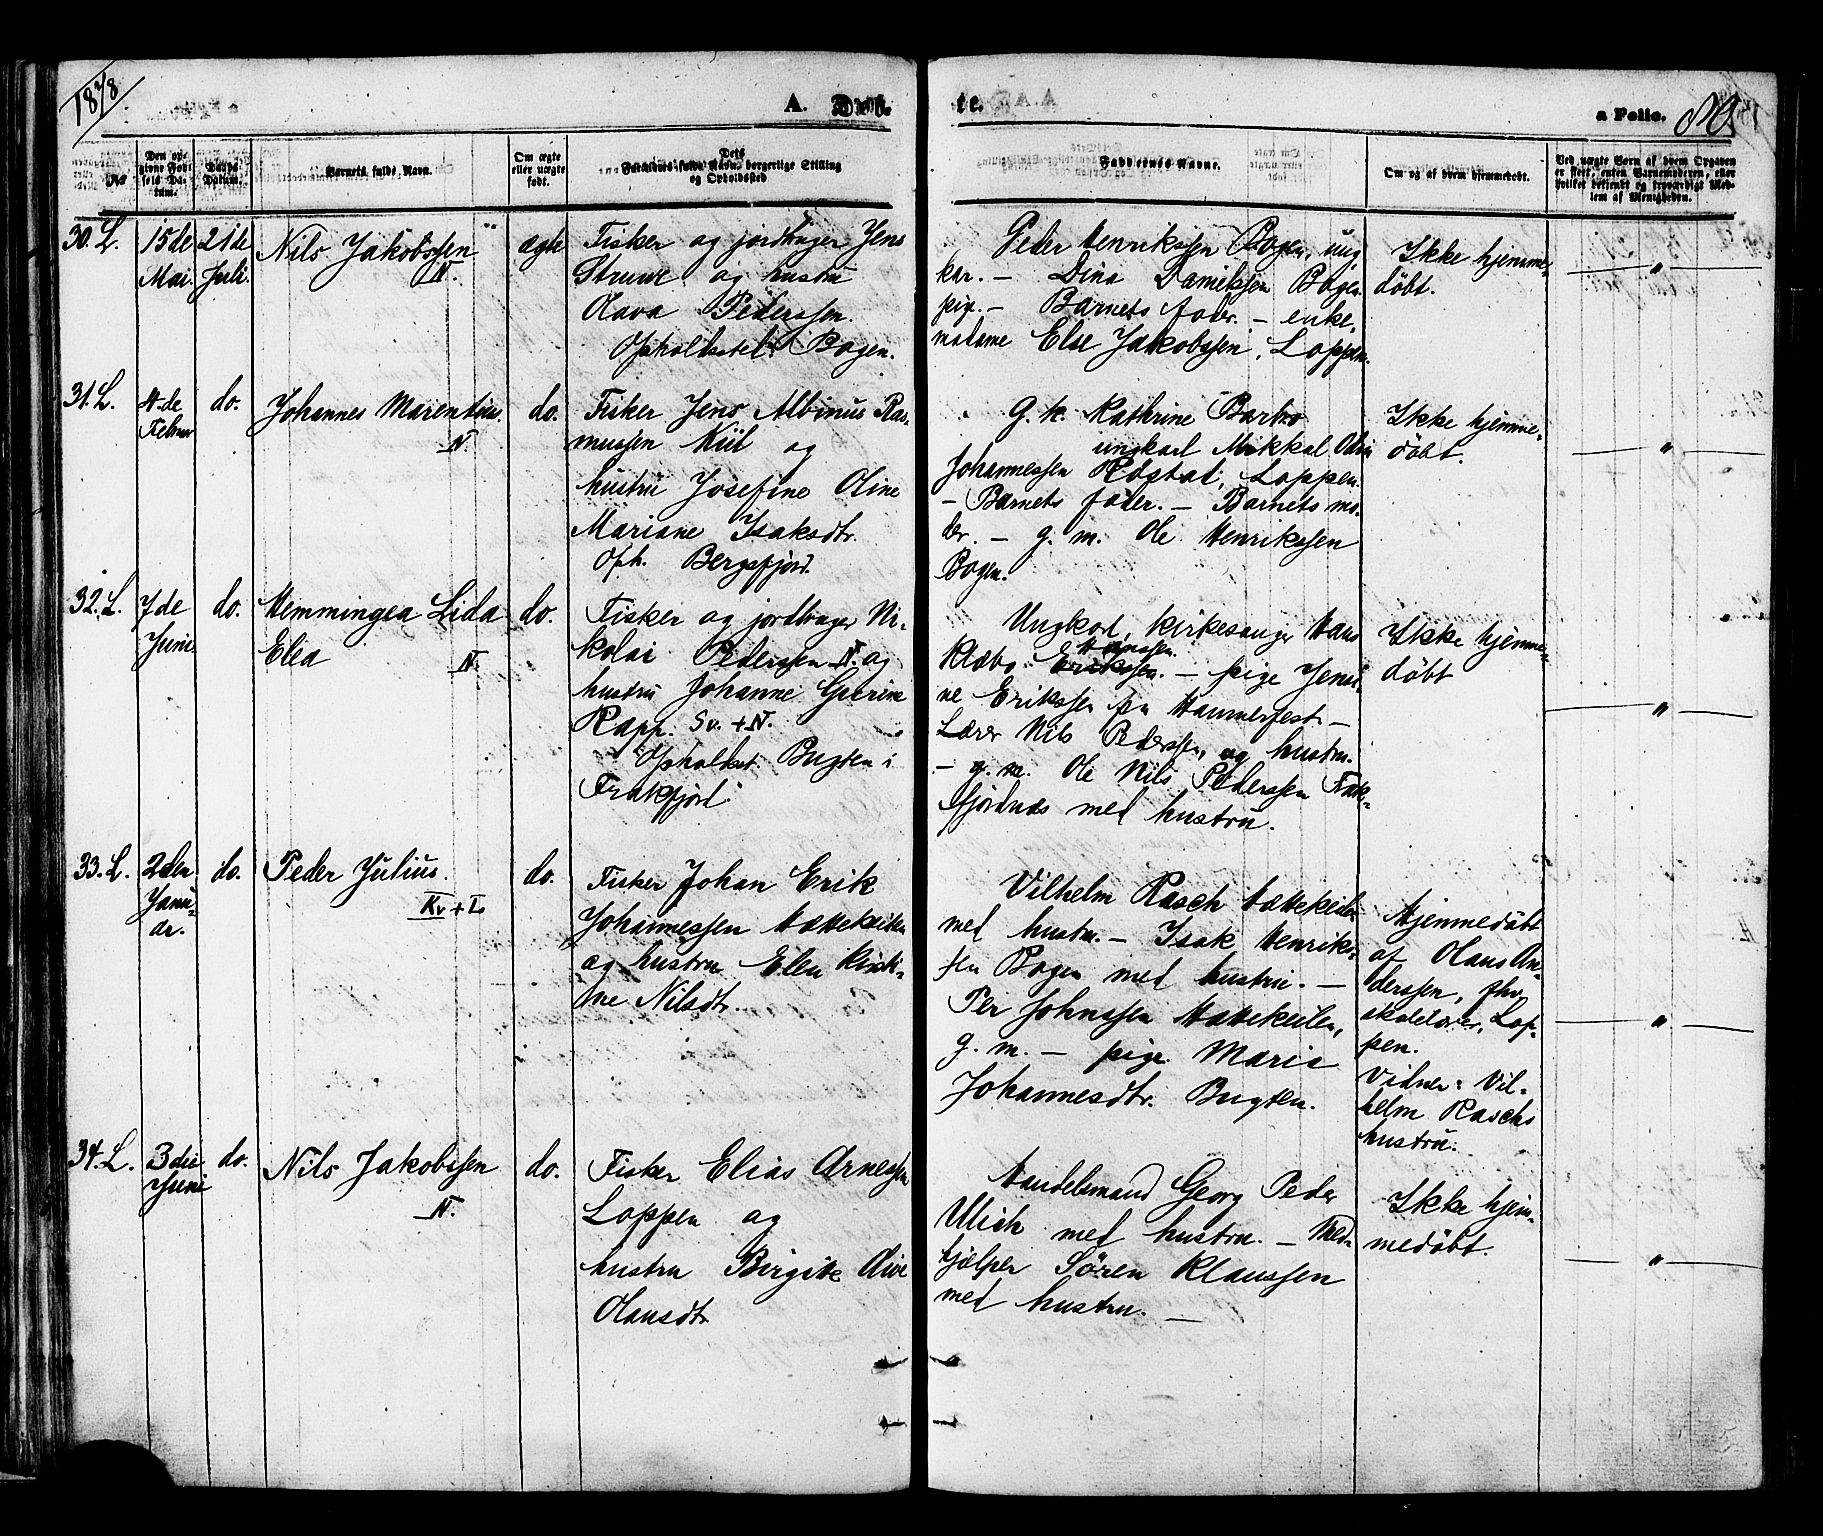 1878.
A. Døb-
te.
a Folio. 80
№
Den op-
givne Fød-
sels Da-
tum.
Daabs
Datum.
Barnets fulde Navn.
Om ægte
eller uægte
født.
Forældrenes fulde Navn, borgerlige Stilling
og Opholdssted
Faddernes Navne.
Om og af hvem hjemmedøbt.
Ved uægte Børn af hvem Opgaven
er skeet, enten Barnemoderen, eller
hvilket bekjendt og troværdigt Med-
lem af Menigheden.
30. L.
15de
Mai.
21de
Juli.
Nils Jakobssen
N.
ægte
Fisker og jordbruger Jens
Struwe og hustru
Olava Pederssen.
Opholdssted: Bogen.
Peder Henrikssen Bogen, ung-
kar. — Dina Danielssen Bogen
pige. — Barnets fader. — enke-
madame Else Jakobssen, Loppen.
Ikke hjemme-
døbt.
"
31. L.
4.de
Februar
do.
Johannes Marentius.
N.
do.
Fisker Jens Albinus Ras-
mussen Kiil og
hustru Josefine Oline
Mariane Isaksdtr.
Oph. Bergsfjord.
G. k. Kathrine Barbro
ungkarl Mikkal
Johannessen Loppen.
— Barnets fader. — Barnets mo-
der. — g. m. Ole Henrikssen
Bogen.
Ikke hjemme-
døbt.
"
32. L.
7de
Juni
do.
Hemmingea Lida
Elea
N.
do.
Fisker og jordbruger Ni-
kolai Pederssen N. og
hustru Johanne
Rapp. Sv. + N.
Opholdsst. Bugten i
Frakfjord.
Ungkarl, kirkesanger Hans
Klæbo Hanssen
Erikssen. — pige Jensi-
ne Erikssen fra Hammerfest —
Lærer Nils Pederssen, og hustru.
— g. m. Ole Nils Pederssen Frak-
fjordnæs med hustru.
Ikke hjemme-
døbt
"
33. L.
2den
Janu-
ar.
do.
Peder Julius.
Kv + L.
do.
Fisker Johan Erik
Johannessen
og hustru Elen Kirsti-
ne Nilsdtr.
Vilhelm Rasch
med hustru. — Isak Henriks-
sen Bogen med hustru. —
Per Johnssen
g. m. — pige Marie
Johannesdtr. Bugten.
Hjemmedøbt
af Olaus An-
derssen, fhv.
skolelærer, Lop-
pen.
Vidner: Vil-
helm Raschs
hustru.
"
34. L.
3die
Juni
do.
Nils Jakobssen
N.
do.
Fisker Elias Arnessen
Loppen og
hustru Birgite Olive
Olausdtr.
Handelsmand Georg Peder
Ulich med hustru. — Med-
hjælper Søren Klaussen
med hustru. —
Ikke hjem-
medøbt.
"